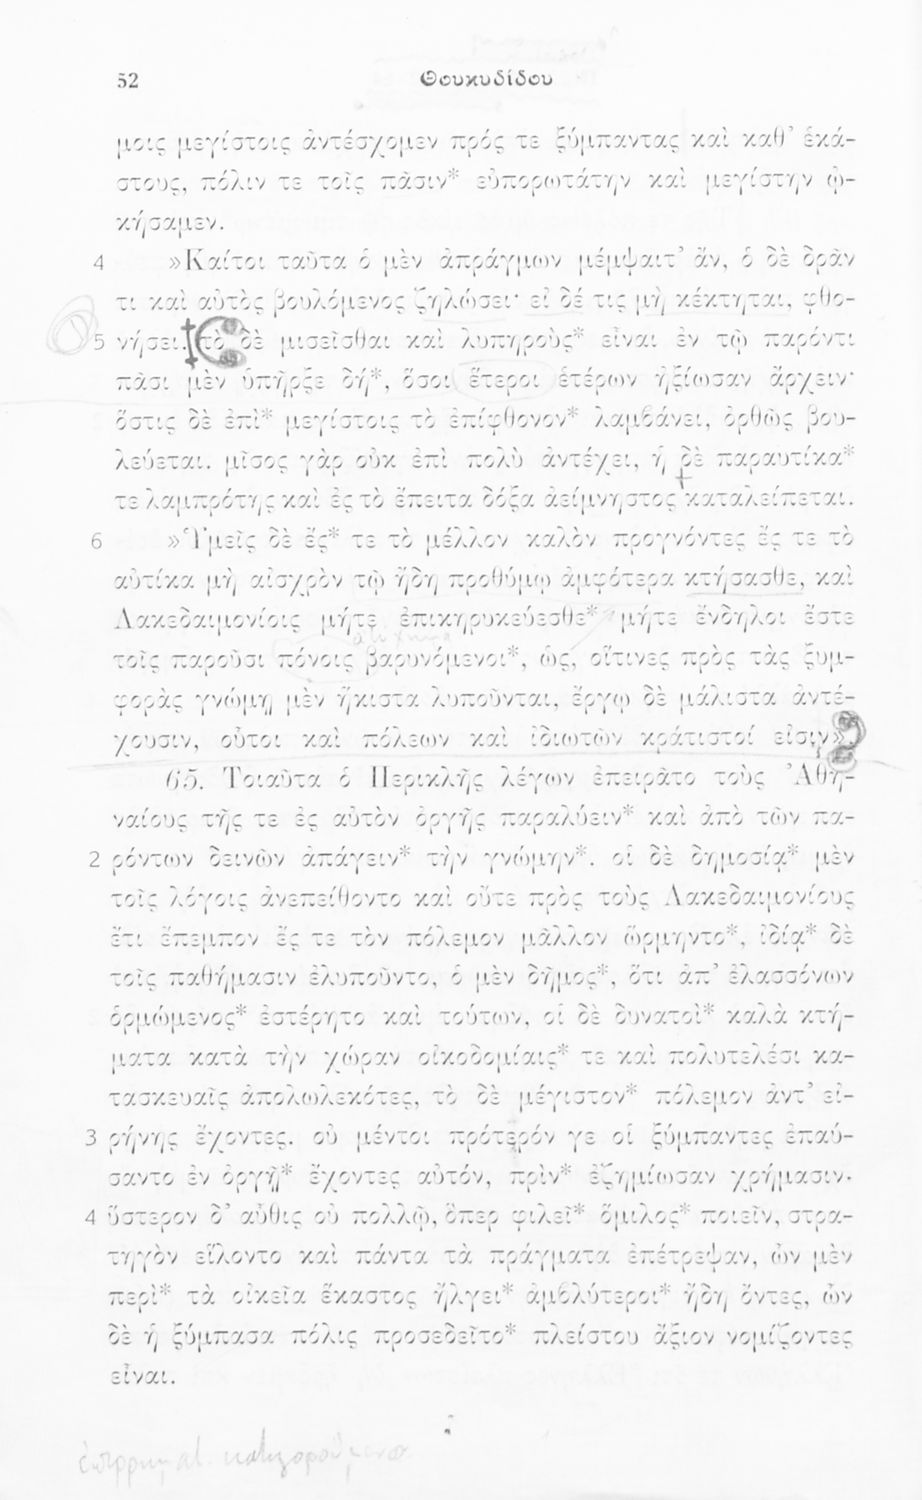 52 Θουκυδίδου
μοις μεγίστοις ἀντέσχομεν πρός τε ξύμπαντας καὶ καθ’ ἑκά-
στους, πόλιν τε τοῖς πᾶσιν* εὐπορωτάτην καὶ μεγίστην ᾠ-
κήσαμεν.
4 »Καίτοι ταῦτα ὁ μὲν ἀπράγμων μέμψαιτ’ ἄν, ὁ δὲ δρᾶν
τι καὶ αὐτὸς βουλόμενος ζηλώσει· εἰ δέ τις μὴ κέκτηται, φθο-
5 νήσει. τὸ δὲ μισεῖσθαι καὶ λυπηροὺς* εἶναι ἐν τῷ παρόντι
πᾶσι μὲν ὑπῆρξε δή*, ὅσοι ἕτεροι ἑτέρων ἠξίωσαν ἄρχειν·
ὅστις δὲ ἐπὶ* μεγίστοις τὸ ἐπίφθονον* λαμβάνει, ὀρθῶς βου-
λεύεται. μῖσος γὰρ οὐκ ἐπὶ πολὺ ἀντέχει, ἡ δὲ παραυτίκα*
τε λαμπρότης καὶ ἐς τὸ ἔπειτα δόξα ἀείμνηστος καταλείπεται.
6 »Ὑμεῖς δὲ ἔς* τε τὸ μέλλον καλὸν προγνόντες ἔς τε τὸ
αὐτίκα μὴ αἰσχρὸν τῷ ἤδη προθύμῳ ἀμφότερα κτήσασθε, καὶ
Λακεδαιμονίοις μήτε ἐπικηρυκεύεσθε* μήτε ἔνδηλοι ἔστε
τοῖς παροῦσι πόνοις βαρυνόμενοι*, ὡς, οἵτινες πρὸς τὰς ξυμ-
φορὰς γνώμῃ μὲν ἥκιστα λυποῦνται, ἔργῳ δὲ μάλιστα ἀντέ-
χουσιν, οὗτοι καὶ πόλεων καὶ ἰδιωτῶν κράτιστοί εἰσιν».
65. Τοιαῦτα ὁ Περικλῆς λέγων ἐπειρᾶτο τοὺς Ἀθη-
ναίους τῆς τε ἐς αὐτὸν ὀργῆς παραλύειν* καὶ ἀπὸ τῶν πα-
2 ρόντων δεινῶν ἀπάγειν* τὴν γνώμην*. οἱ δὲ δημοσίᾳ* μὲν
τοῖς λόγοις ἀνεπείθοντο καὶ οὔτε πρὸς τοὺς Λακεδαιμονίους
ἔτι ἔπεμπον ἔς τε τὸν πόλεμον μᾶλλον ὥρμηντο*, ἰδίᾳ* δὲ
τοῖς παθήμασιν ἐλυποῦντο, ὁ μὲν δῆμος*, ὅτι ἀπ’ ἐλασσόνων
ὁρμώμενος* ἐστέρητο καὶ τούτων, οἱ δὲ δυνατοὶ* καλὰ κτή-
ματα κατὰ τὴν χώραν οἰκοδομίαις* τε καὶ πολυτελέσι κα-
τασκευαῖς ἀπολωλεκότες, τὸ δὲ μέγιστον* πόλεμον ἀντ’ εἰ-
3 ρήνης ἔχοντες. οὐ μέντοι πρότερόν γε οἱ ξύμπαντες ἐπαύ-
σαντο ἐν ὀργῇ* ἔχοντες αὐτόν, πρὶν* ἐζημίωσαν χρήμασιν.
4 ὕστερον δ’ αὖθις οὐ πολλῷ, ὅπερ φιλεῖ* ὅμιλος* ποιεῖν, στρα-
τηγὸν εἵλοντο καὶ πάντα τὰ πράγματα ἐπέτρεψαν, ὧν μὲν
περὶ* τὰ οἰκεῖα ἕκαστος ἤλγει* ἀμβλύτεροι* ἤδη ὄντες, ὧν
δὲ ἡ ξύμπασα πόλις προσεδεῖτο* πλείστου ἄξιον νομίζοντες
εἶναι.